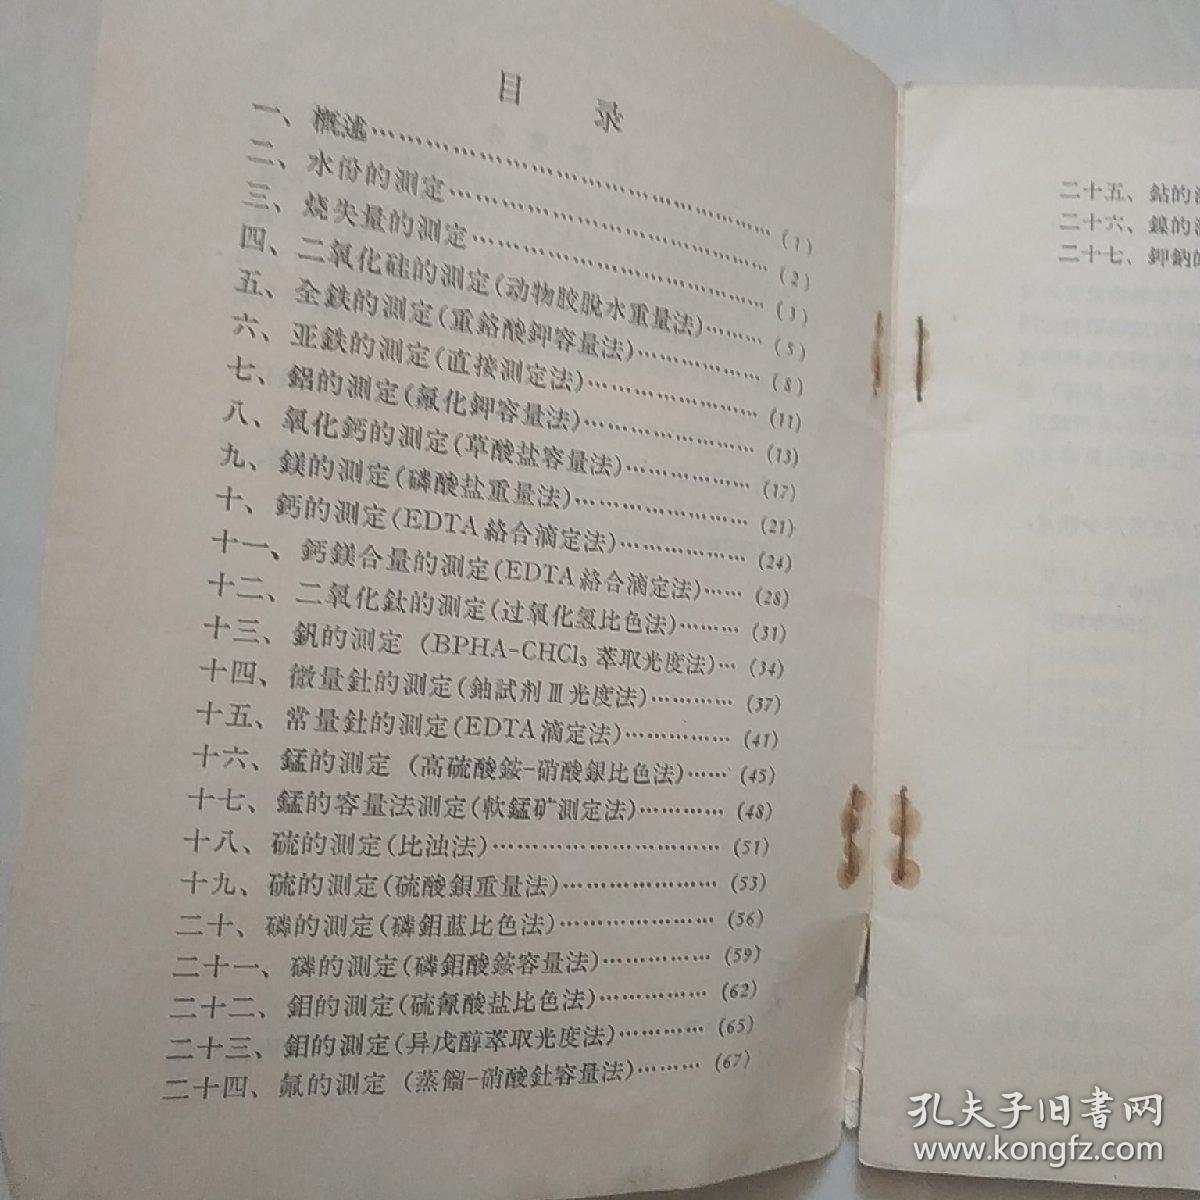 目 录
一、概述…………………………………………(1)
二、水份的測定…………………………………(2)
三、烧失量的測定………………………………(3)
四、二氧化硅的測定(动物胶脫水重量法)………(5)
五、全鉄的測定(重鉻酸鉀容量法)……………(8)
六、亚鉄的測定(直接測定法)…………………(11)
七、鋁的測定(氟化鉀容量法)…………………(13)
八、氧化鈣的測定(草酸盐容量法)……………(17)
九、鎂的測定(磷酸盐重量法)…………………(21)
十、鈣的測定(EDTA絡合滴定法)………………(24)
十一、鈣鎂合量的測定(EDTA絡合滴定法)……(28)
十二、二氧化鈦的測定(过氧化氢比色法)………(31)
十三、釩的測定 (BPHA-CHCl₃萃取光度法)…(34)
十四、微量釷的測定(鈾試剂Ⅲ光度法)…………(37)
十五、常量釷的測定(EDTA滴定法)……………(41)
十六、錳的測定 (高硫酸銨-硝酸銀比色法)……(45)
十七、錳的容量法測定(軟錳矿測定法)…………(48)
十八、硫的測定(比浊法)………………………(51)
十九、硫的測定(硫酸鋇重量法)………………(53)
二十、磷的測定(磷鉬蓝比色法)………………(56)
二十一、磷的測定(磷鉬酸銨容量法)……………(59)
二十二、鉬的測定(硫氰酸盐比色法)……………(62)
二十三、鉬的測定(异戊醇萃取光度法)…………(65)
二十四、氟的測定 (蒸餾-硝酸釷容量法)………(67)
二十五、鈷的
二十六、鎳的
二十七、鉀鈉的
孔夫子旧书网
www.kongfz.com